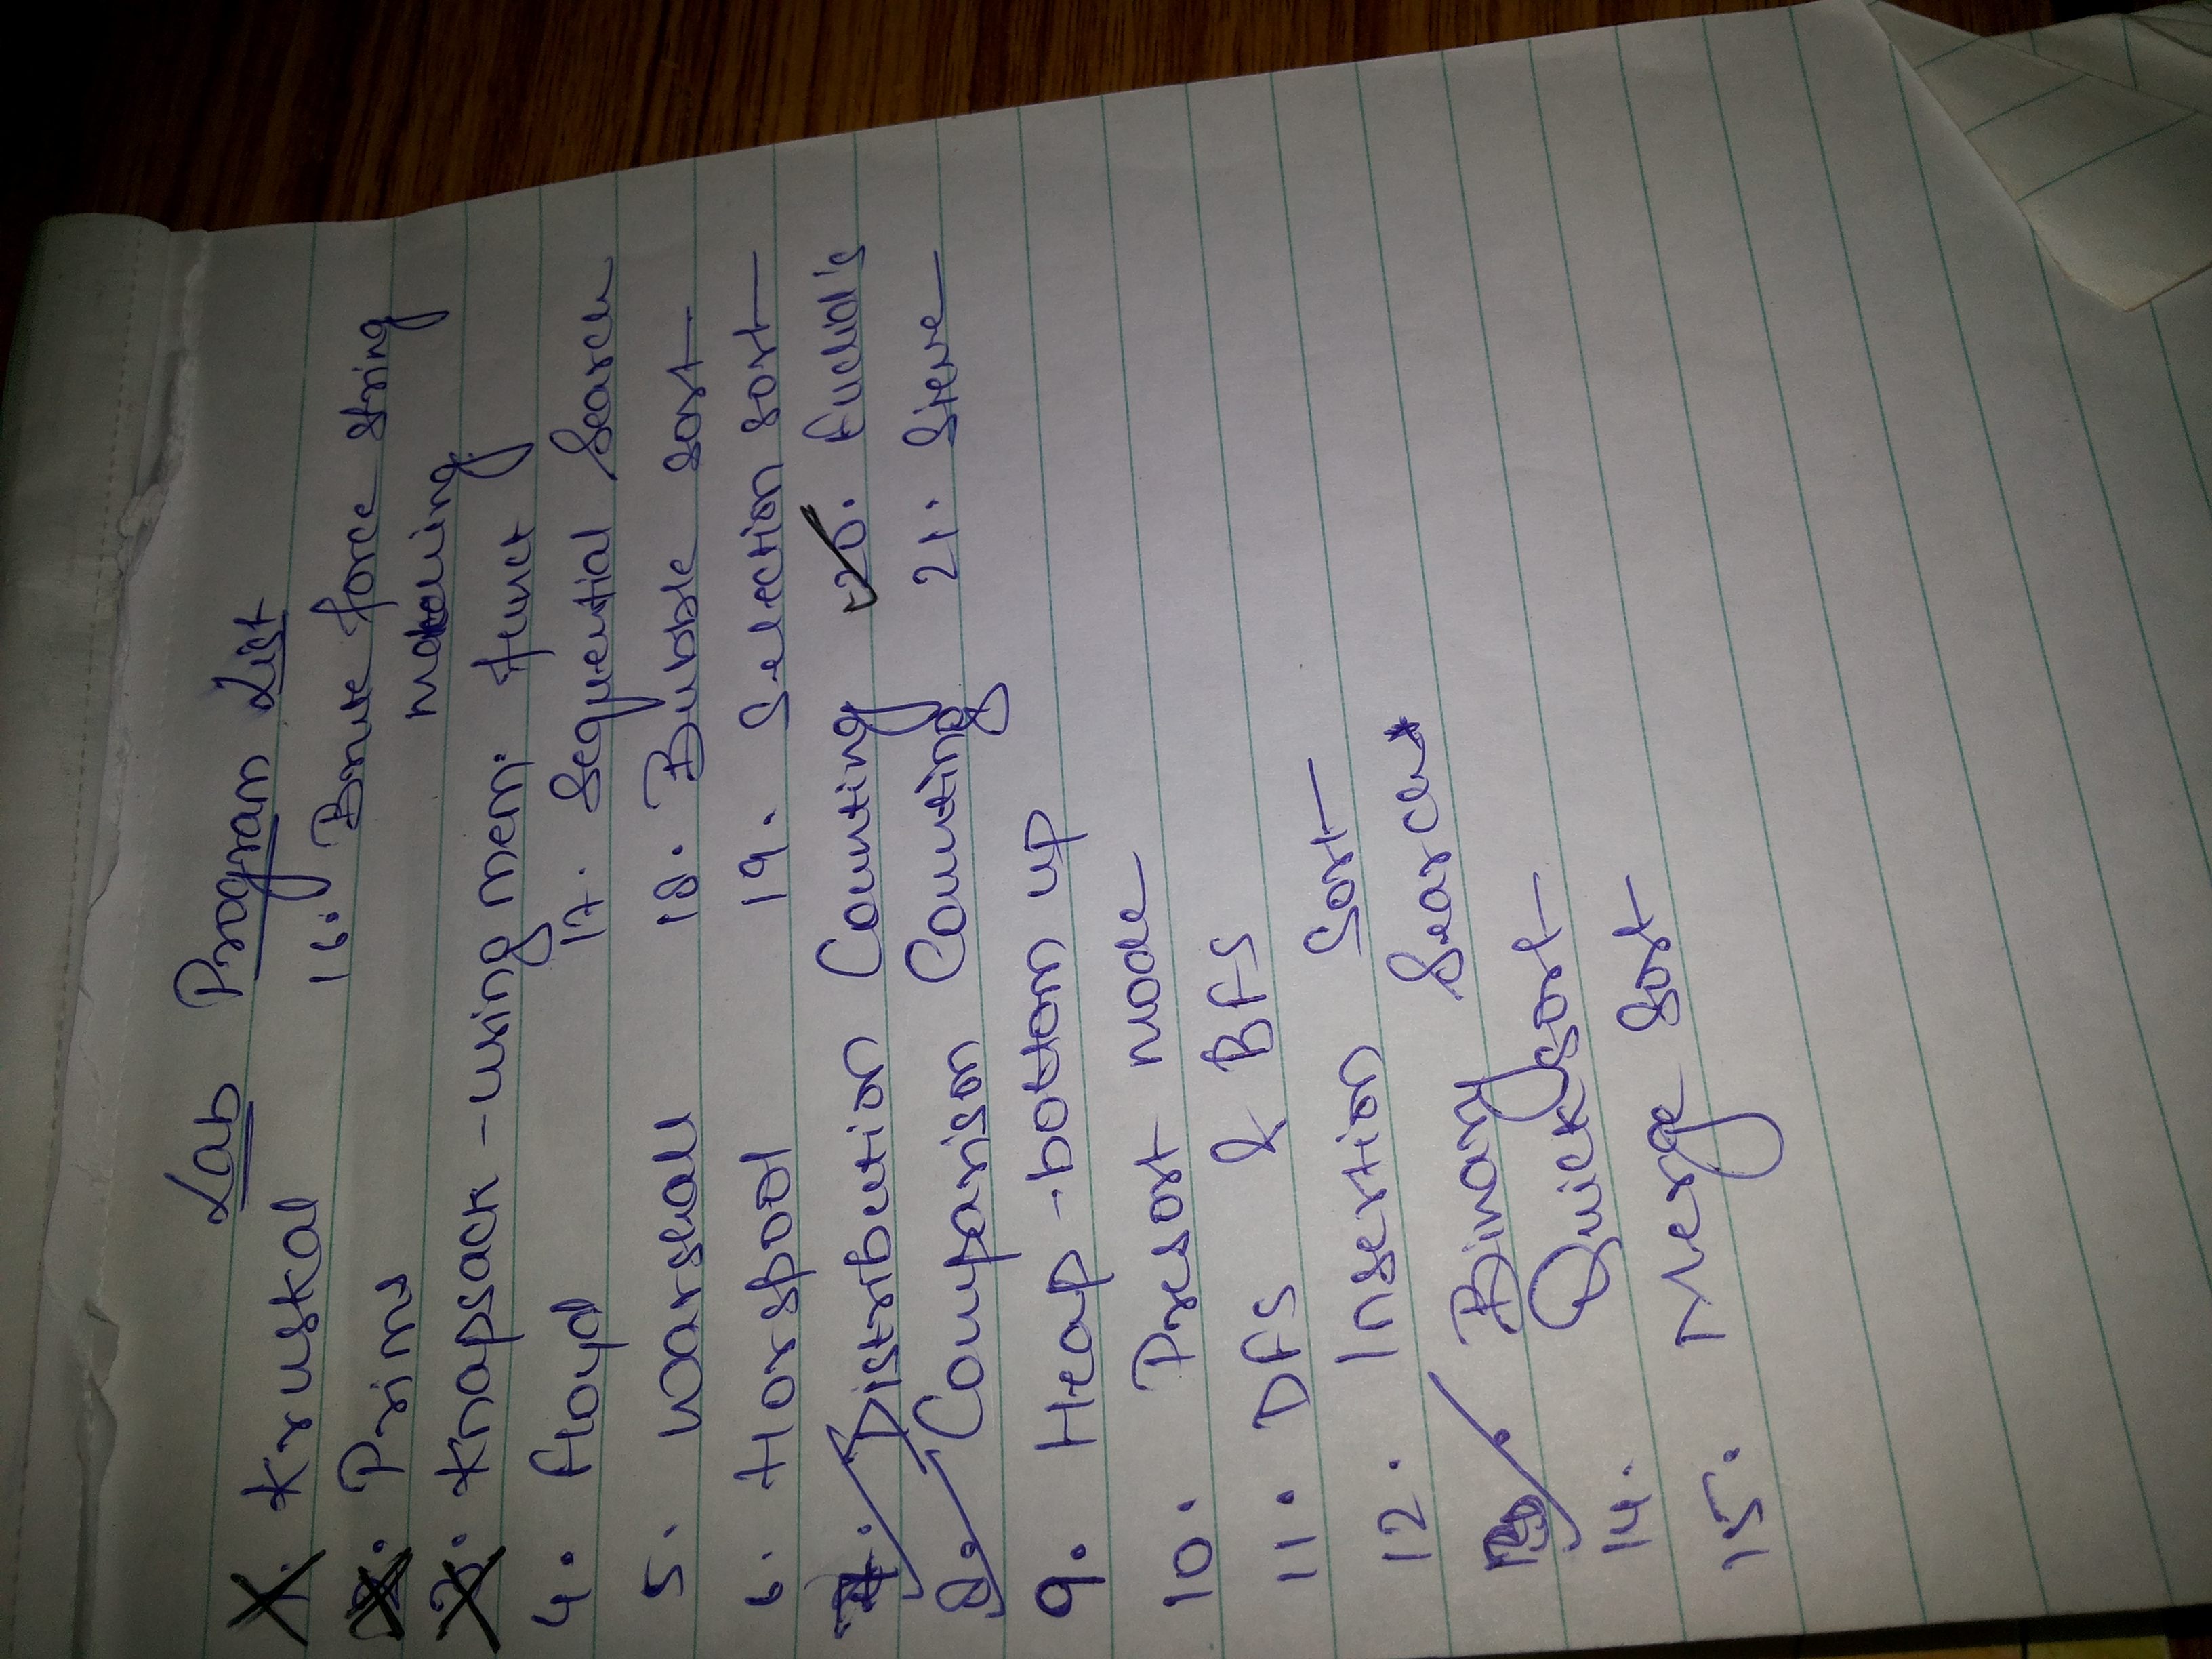 Lab Program List
1. Kruskal
2. Prims
3. Knapsack - using mem. funct
4. Floyd
5. Warshall
6. Horspool
7. Distribution Counting
8. Comparison Counting
9. Heap - bottom up
10. Presort mode
11. DFS & BFS
12. Insertion Sort
Binary Search
14. Quick sort
15. Merge Sort
16. Brute force string
matching
17. Sequential Search
18. Bubble sort
19. Selection sort
20. Euclid's
21. Sieve